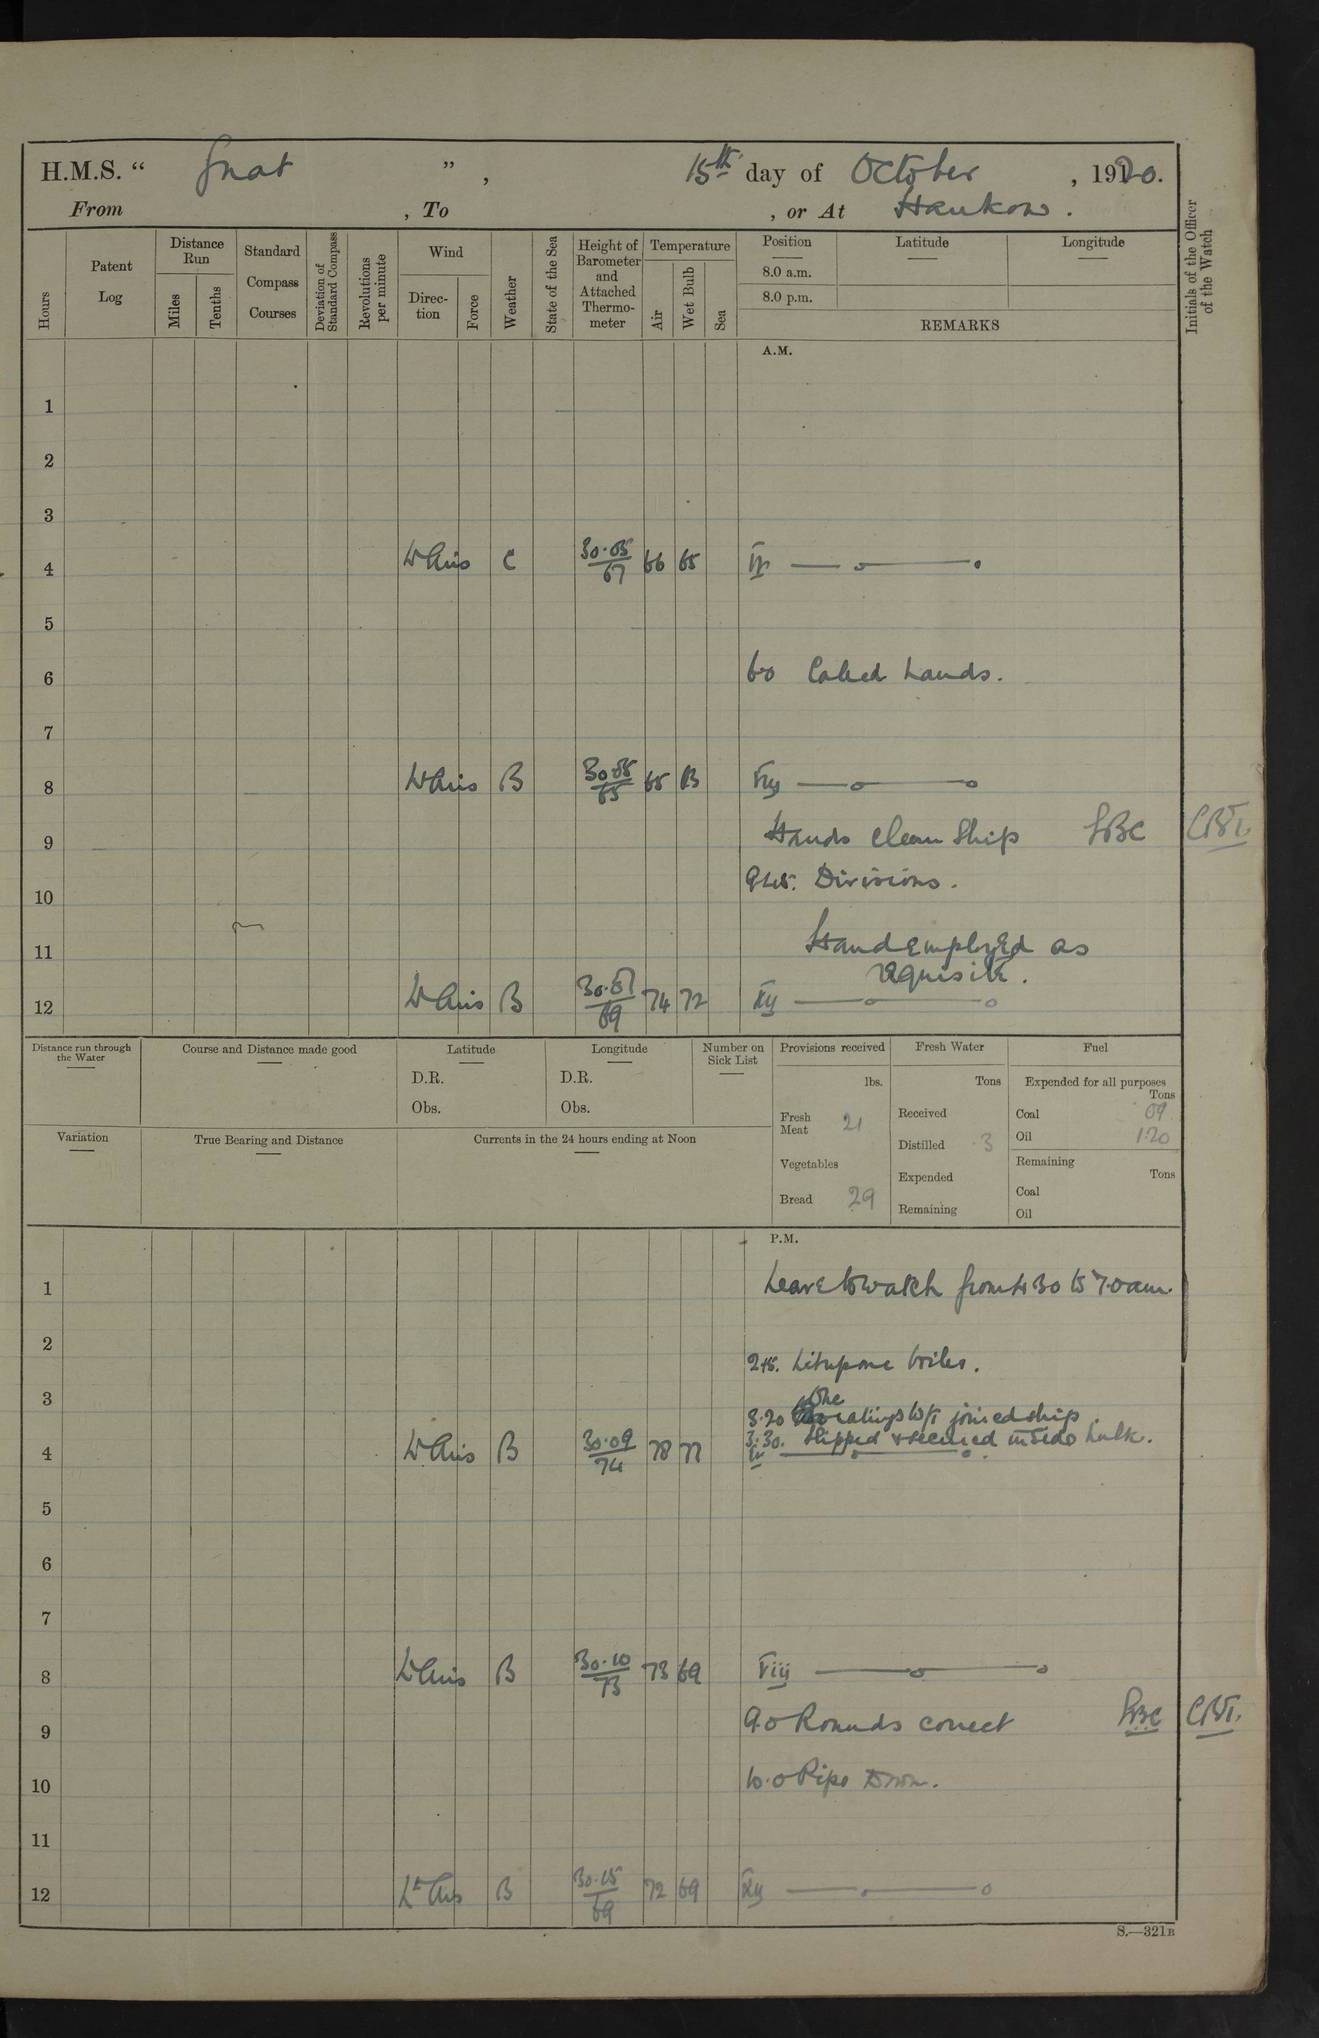 H.M.S. “ Gnat ” , 15th day of October , 1920.
From , To , or At Hankow .
Hours
Patent Log
Distance Run
Miles
Tenths
Standard Compass Courses
Deviation of Standard Compass
Revolutions per minute
Wind
Direction
Force
Weather
State of the Sea
Height of Barometer and Attached Thermometer
Temperature
Air
Wet Bulb
Sea
Position
8.0 a.m.
8.0 p.m.
Latitude
Longitude
REMARKS
Initials of the Officer of the Watch
A.M.
1
2
3
4 Lt Airs C 30.05/67 66 65 IV
5
6 6.0 Called hands.
7
8 Lt Airs B 30.05/65 65 VIII
Hands clean Ship SBC
9
9.45. Divisions.
10
11 Hands employed as
requisite.
12 Lt Airs B 69 74 72 XII
Distance run through the Water
Course and Distance made good
Latitude
D.R.
Obs.
Longitude
D.R.
Obs.
Number on Sick List
Provisions received
lbs.
Fresh Meat 21
Vegetables
Bread 29
Fresh Water
Tons
Received
Distilled .3
Expended
Remaining
Fuel
Expended for all purposes
Tons
Coal .09
Oil 1.20
Remaining
Tons
Coal
Oil
Variation
True Bearing and Distance
Currents in the 24 hours ending at Noon
P.M.
1 Leave to watch from 4.30 to 7.0 am.
2
2.45. Lit up one boiler.
3
One
3.20 ratings W/T joined ship.
3.30. Slipped & secured inside hulk.
4 Lt Airs B 30.09/74 78 77 IV
5
6
7
8 Lt Airs B 30.10/73 73 69 VIII
9 9.0 Rounds correct SBC
10 10.0 Pipe Down.
11
12 Lt Airs B 30.15/69 72 69 XII
S.—321B